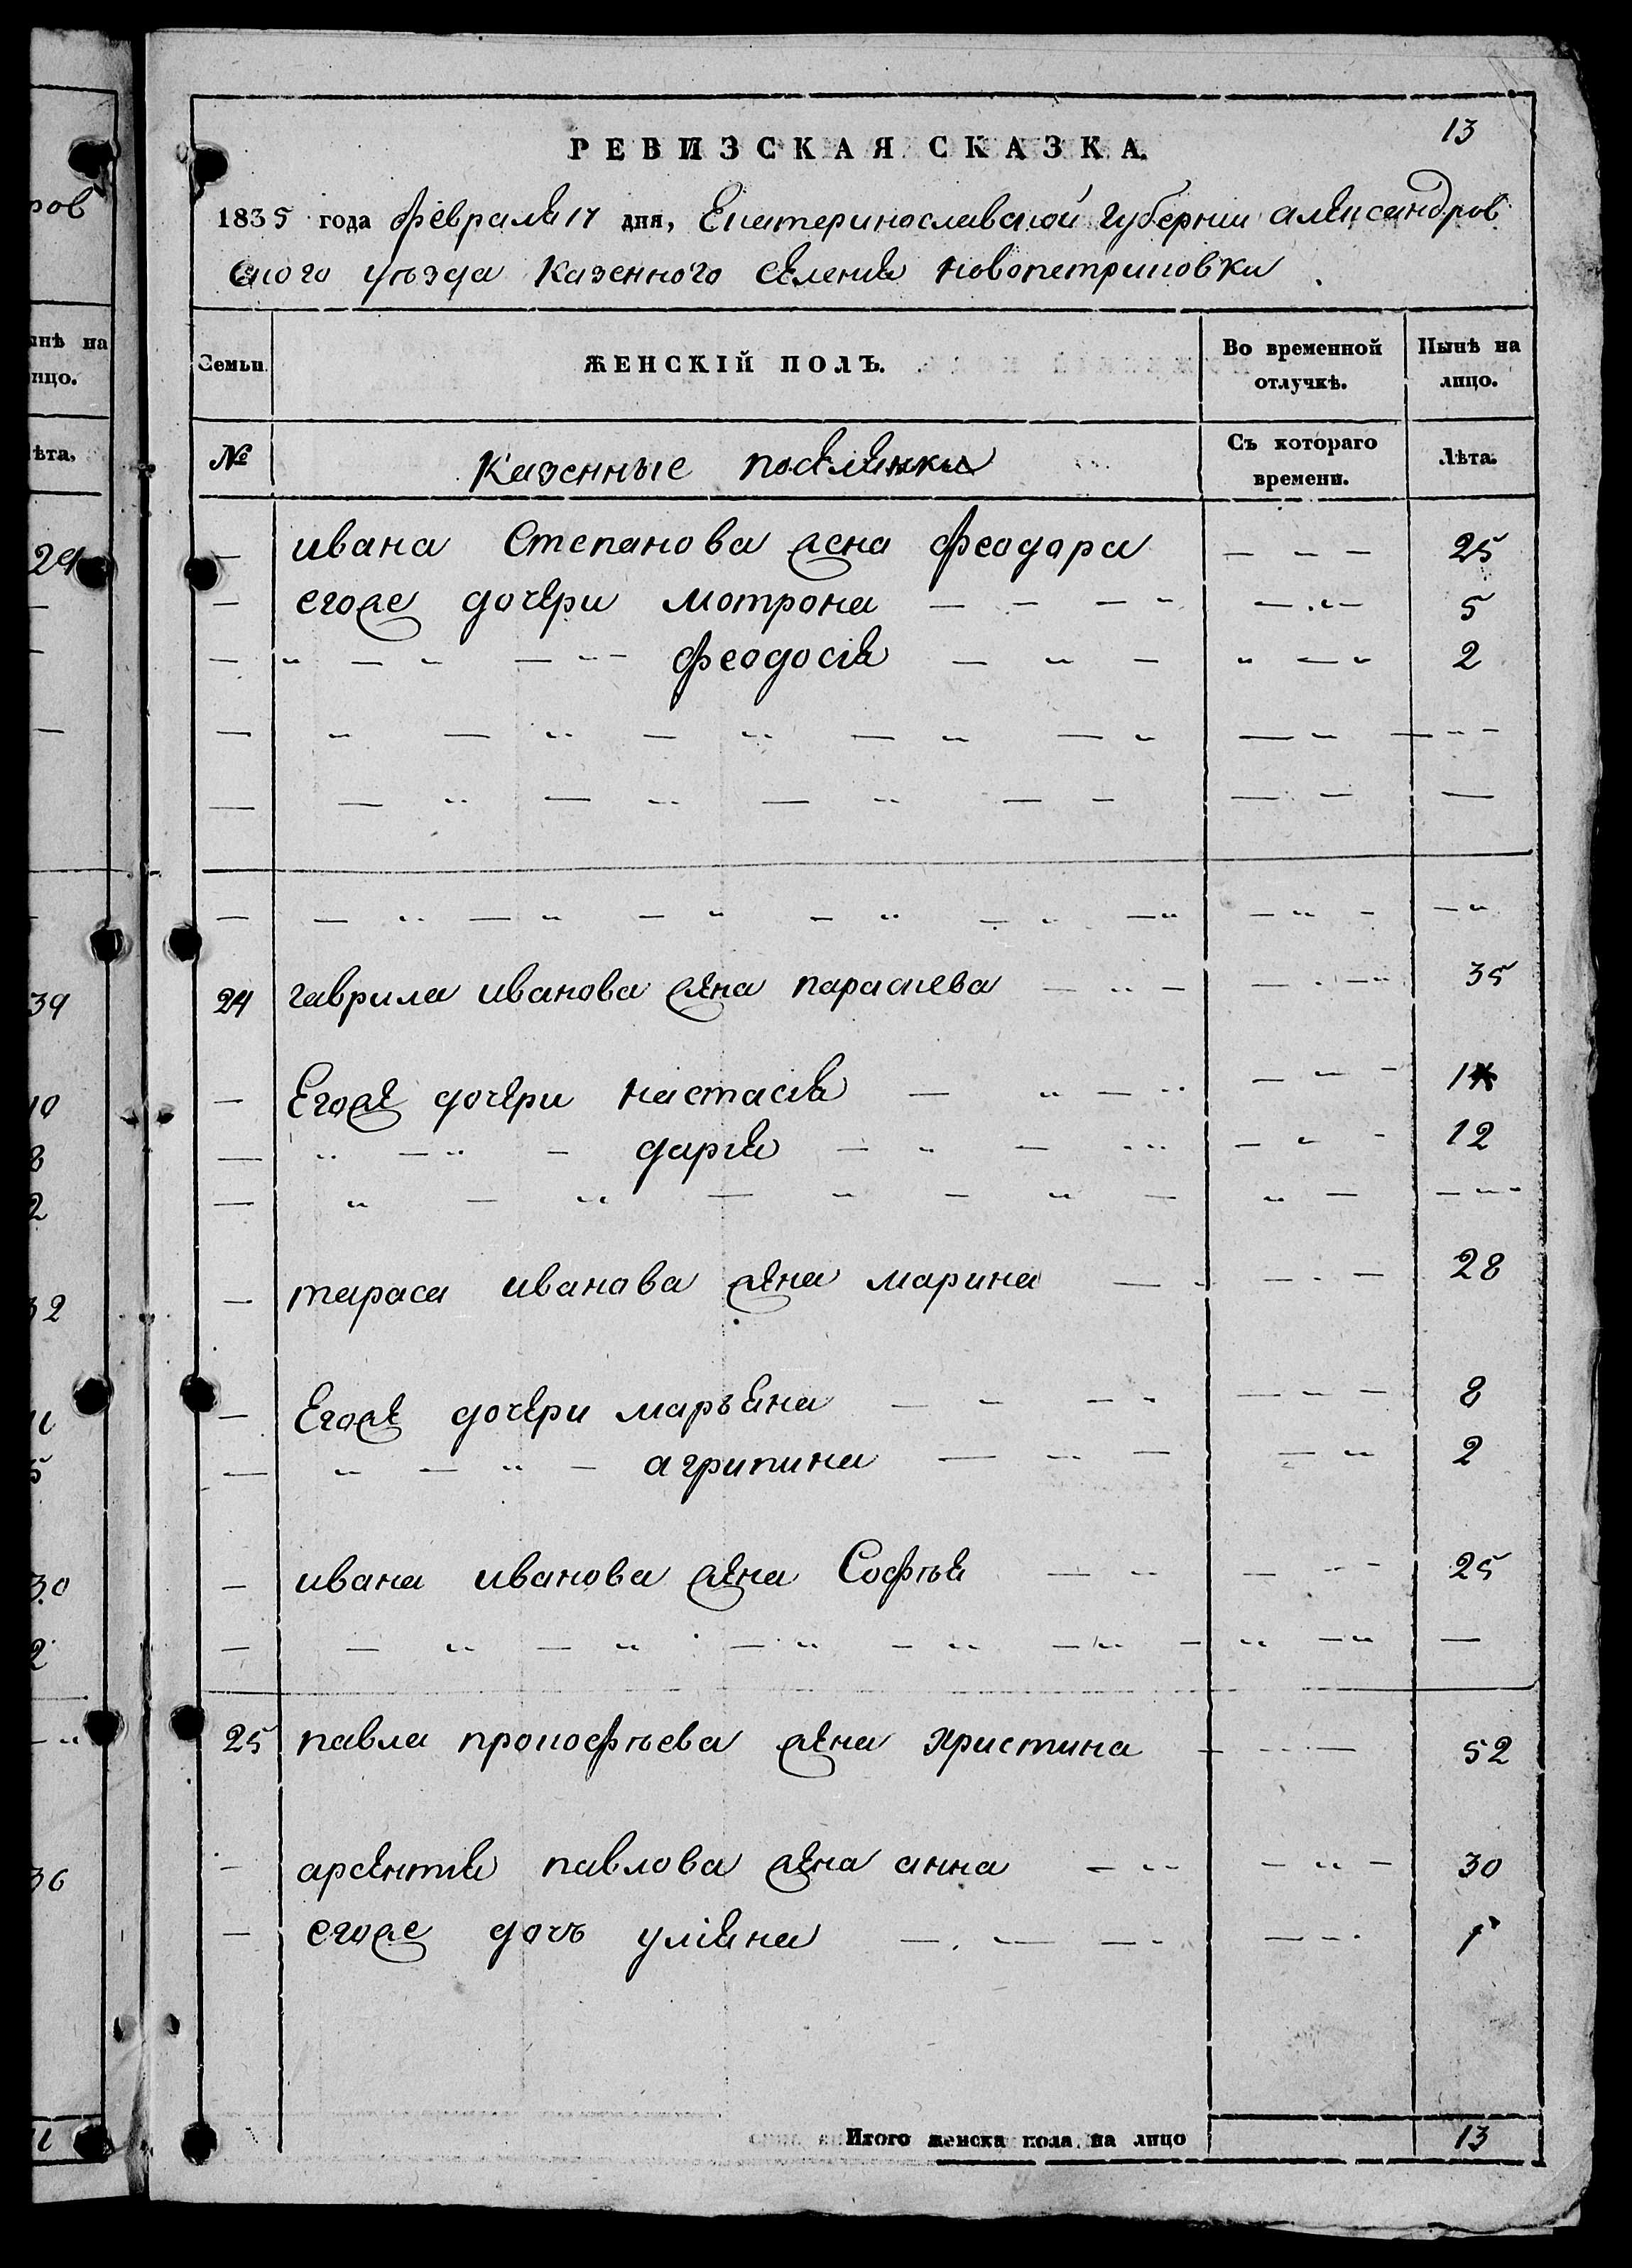 13
РЕВИЗСКАЯ СКАЗКА.
1835 года февраля 17 дня, Екатеринославской губернии александров
ского уѣзда казенного селения новопетриковки
Семьи. ЖЕНСКІЙ ПОЛЪ. Во временной отлучкѣ. Нынѣ на лицо.
№ Казенные поселянки Съ котораго времени. Лѣта.
ивана Степанова жена феодора 25
егоже дочери мотрона 5
феодосія 2
24 гаврила иванова жена параскева 35
Егоже дочери настасія
дарія 12
тараса иванова жена марина 28
Егоже дочери марьяна 8
агрипина 2
ивана иванова жена Софья 25
25 павла прокофьева жена христина 52
арсентія павлова жена анна 30
егоже дочь уліяна
Итого женска пола на лицо 13
ров
ынѣ на
ицо.
ѣта.
29
39
10
8
2
32
11
5
30
2
36